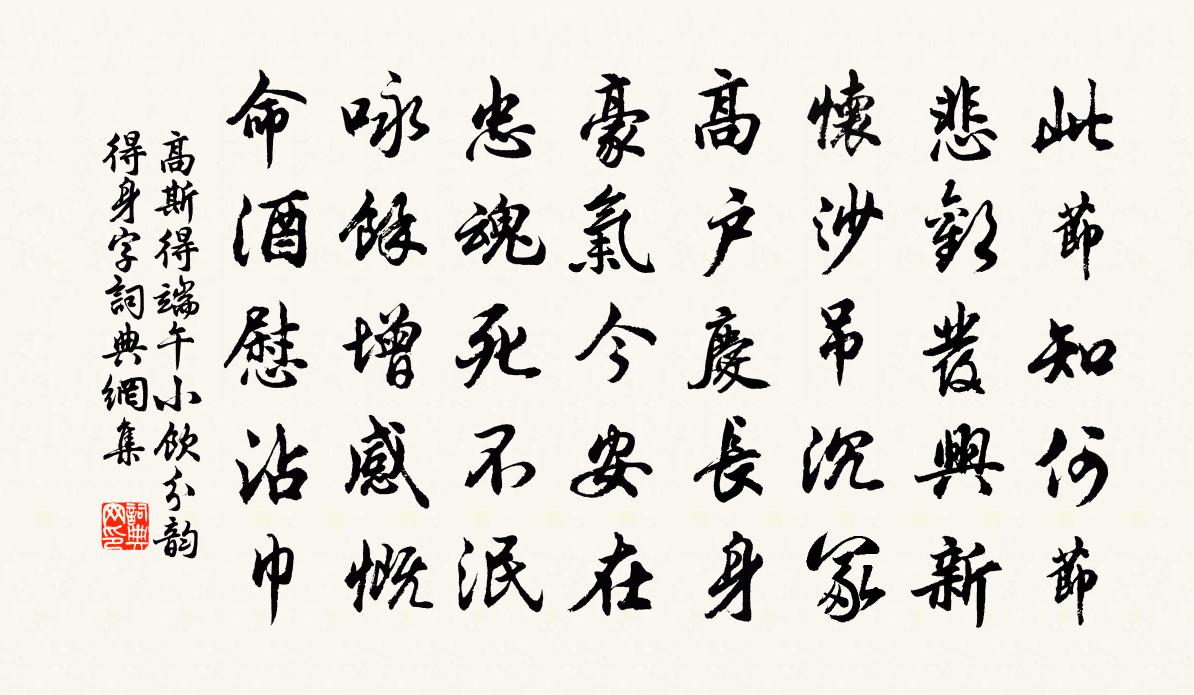 此節知何節
悲歡發興新
懷沙吊沉冢
高户慶長身
豪氣今安在
忠魂死不泯
咏餘增感慨
命酒慰沾巾
高斯得端午小飲分韵
得身字詞典網集
詞典
网印